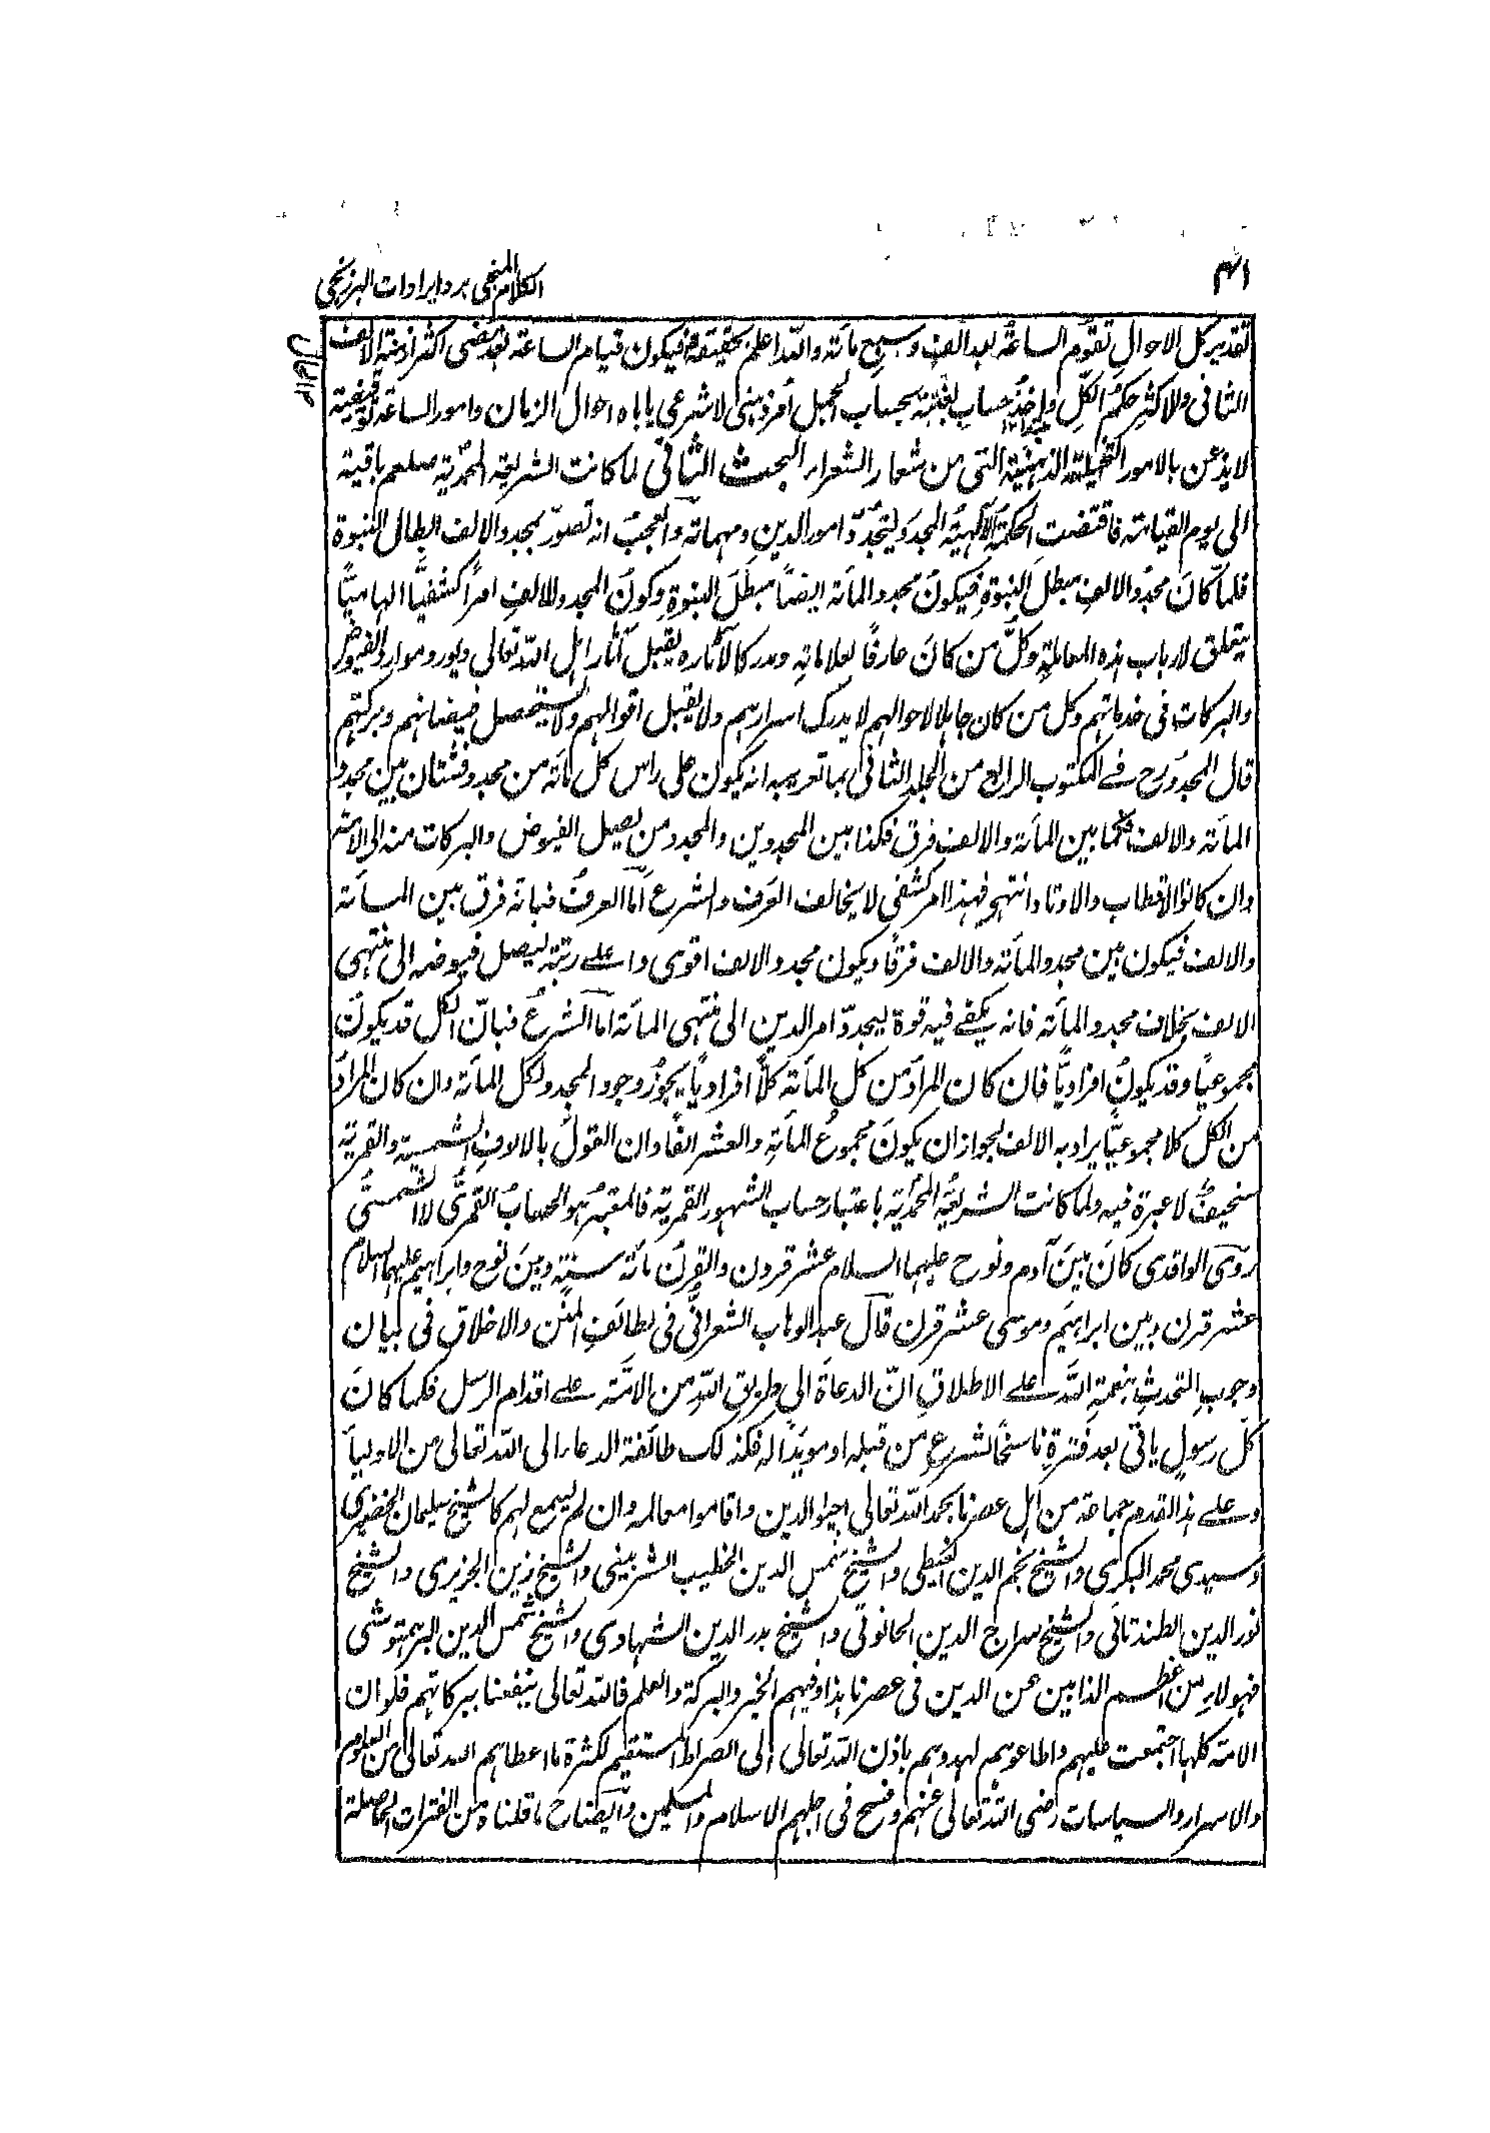 الکلام المنجی برد ایرادات البرزنجی
تقدیر کل الاحوال تقوم الساعة بعد الف وسبع مأته واللہ اعلم بحقیقة فیکون قیام الساعة بعد مضی اکثر ازمنة الالف
الثانی وللاکثر حکم الکل واخذ حساب لغتة بحساب الجمل امر ذہنی لا شرعی یاباہ احوال الزمان وامور الساعة توقیفیة
لا یذعن بالامور التخیلیة الذہنیة التی من شعار الشعراء البحث الثانی لما کانت الشریعة المحمدیة صلعم باقیة
الی یوم القیامة فاقتضت الحکمة الالٰہیة المجدد لیتجدد امور الدین ومہماته والعجب انه تصور بمجدد الالف ابطال النبوة
فلما کان مجدد الالف مبطل النبوة فیکون مجدد المأته ایضاً مبطل النبوة وکون المجدد للالف امراً کشفیاً الہامیاً
یتعلق لارباب ہذہ المعاملة وکل من کان عارفاً لعلاماته ومدرکا لآثارہ یقبل آثار اہل اللہ تعالی ویورد موارد الفیوض
والبرکات فی خدماتہم وکل من کان جاہلا لاحوالہم لا یدرک اسرارہم ولا یقبل اقوالہم ولا یستحصل فیضانہم وبرکتہم
قال المجدد رح فے المکتوب الرابع من الجلد الثانی بما تعریبه انه یکون علی راس کل مأته من مجدد فشتان بین مجدد
المأته والالف فکما بین المأته والالف فرق فکذا بین المجددین والمجدد من یصل الفیوض والبرکات منه الی الامة
وان کانوا الاقطاب والاوتاد انتہی فہذا امر کشفی لا یخالف العرف والشرع اما العرف فبانه فرق بین المأته
والالف فیکون بین مجدد المأته والالف فرقاً ویکون مجدد الالف اقوی واعلے رتبة لیصل فیوضه الی منتہی
الالف بخلاف مجدد المأته فانه یکفے فیه قوة لیجدد امر الدین الی منتہی المأته اما الشرع فبان الکل قد یکون
مجموعیاً وقد یکون افرادیاً فان کان المراد من کل المأته کلاً افرادیاً یجوز وجود المجدد لکل المأته وان کان المراد
من الکل کلا مجموعیاً یراد به الالف لجواز ان یکون مجموع المأته والعشر الفاً وان القول بالالوف الشمسیة والقمریة
سخیف لا عبرة فیه ولما کانت الشریعة المحمدیة باعتبار حساب الشہور القمریة فالمعتبر ہو الحساب القمری لا الشمسی
روی الواقدی کان بین آدم ونوح علیہما السلام عشر قرون والقرن مأته سنة وبین نوح وابراہیم علیہما السلام
عشر قرن وبین ابراہیم وموسی عشر قرن قال عبد الوہاب الشعرانی فی لطائف المنن والاخلاق فی بیان
وجوب التحدث بنعمة اللہ علے الاطلاق ان الدعاة الی طریق اللہ من الائمة علے اقدام الرسل فکما کان
کل رسول یاتی بعد فترة ناسخاً لشرع من قبله او مویداً له فکذلک طائفة الدعاء الی اللہ تعالی من الاولیاء
وعلے ہذا القدم جماعة من اہل عصرنا بحمد اللہ تعالی احیوا الدین واقاموا معالمه وان لم یسمع لہم کالشیخ سلیمان الخضیری
وسیدی محمد البکری والشیخ نجم الدین الغیطی والشیخ شمس الدین الخطیب الشربینی والشیخ زین الجزیری والشیخ
نور الدین الطندتائی والشیخ سراج الدین الحانوتی والشیخ بدر الدین الشہاوی والشیخ شمس الدین البرہمتوشی
فہولاء من اعظم الذابین عن الدین فی عصرنا ہذا وفیہم الخیر والبرکة والعلم فاللہ تعالی ینفعنا ببرکاتہم فلو ان
الامة کلہا اجتمعت علیہم واطاعوہم لہدوہم باذن اللہ تعالی الی الصراط المستقیم لکثرة ما اعطاہم اللہ تعالی من العلوم
والاسرار والسیاسات رضی اللہ تعالی عنہم وفسح فی اجلہم الاسلام والمسلمین وایضاح ما قلناہ من الفترات الحاصلة